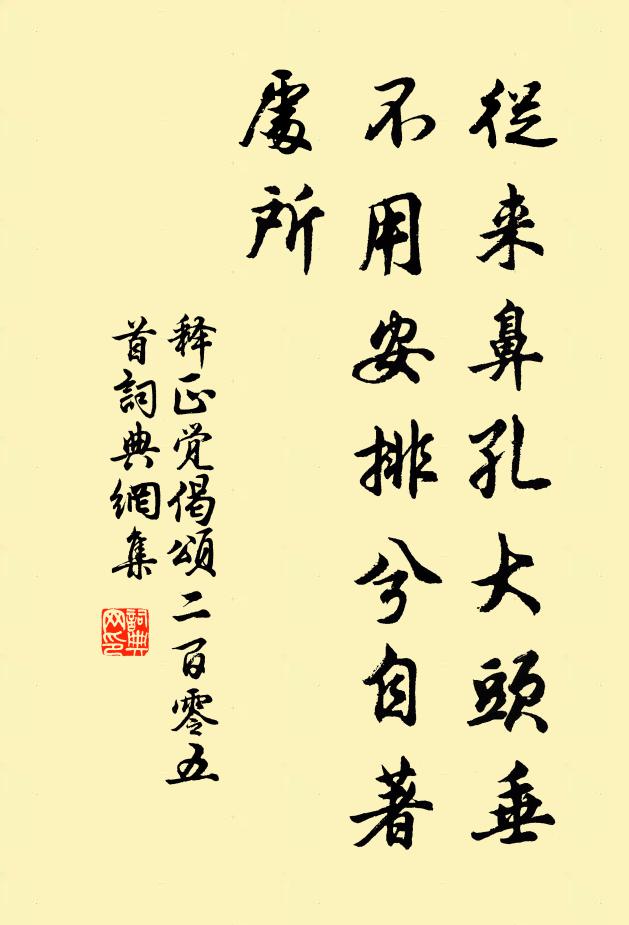 從来鼻孔大頭垂
不用安排兮自著
處所
释正觉偈頌二百零五
首詞典網集
詞典
网印